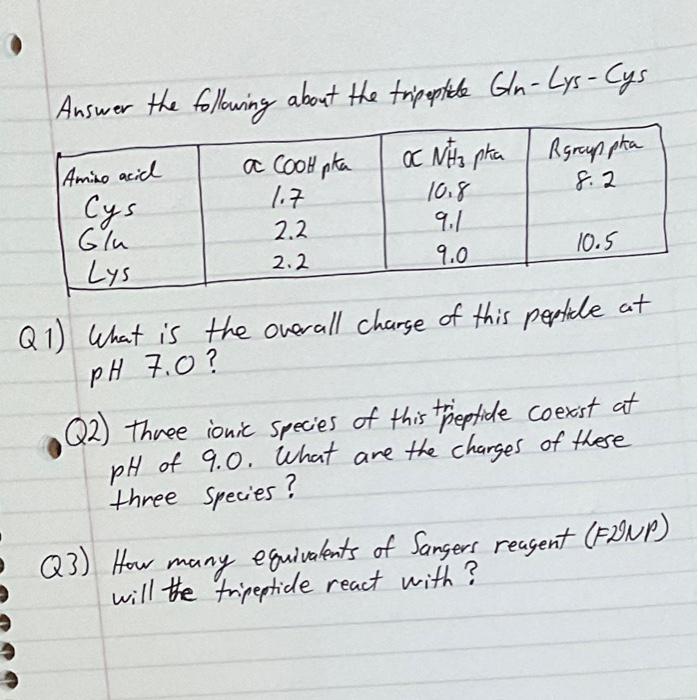 Answer the following about the tripeptide Gln-Lys-Cys
Amino acid α COOH pka α NH₃⁺ pka R group pka
Cys 1.7 10.8 8.2
Gln 2.2 9.1
Lys 2.2 9.0 10.5
Q1) What is the overall charge of this peptide at
pH 7.0?
Q2) Three ionic species of this tripeptide coexist at
pH of 9.0. What are the charges of these
three species?
Q3) How many equivalents of Sangers reagent (F2DNP)
will the tripeptide react with?